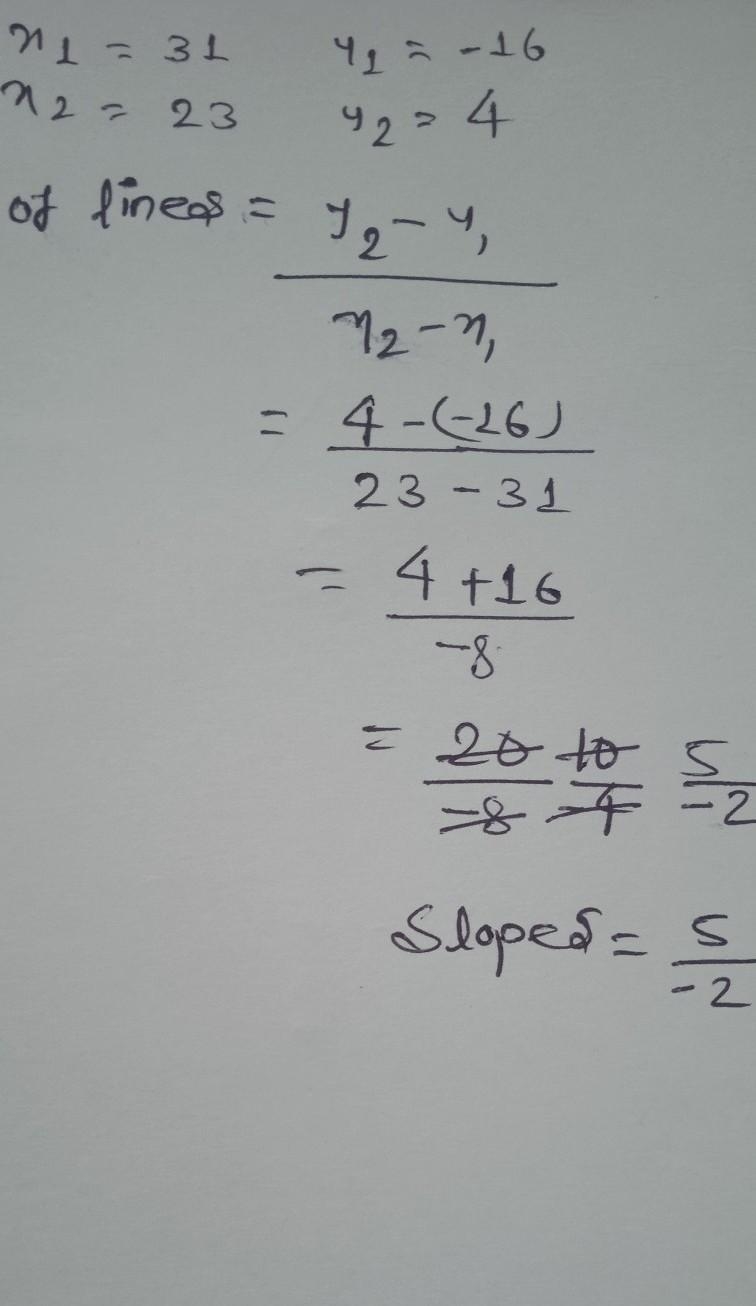 x1 = 31 y1 = -16
x2 = 23 y2 = 4
of lines = y2 - y1
x2 - x1
= 4 - (-16)
23 - 31
= 4 + 16
-8
= 20 10 5
-8 -4 -2
Slopes = 5
-2